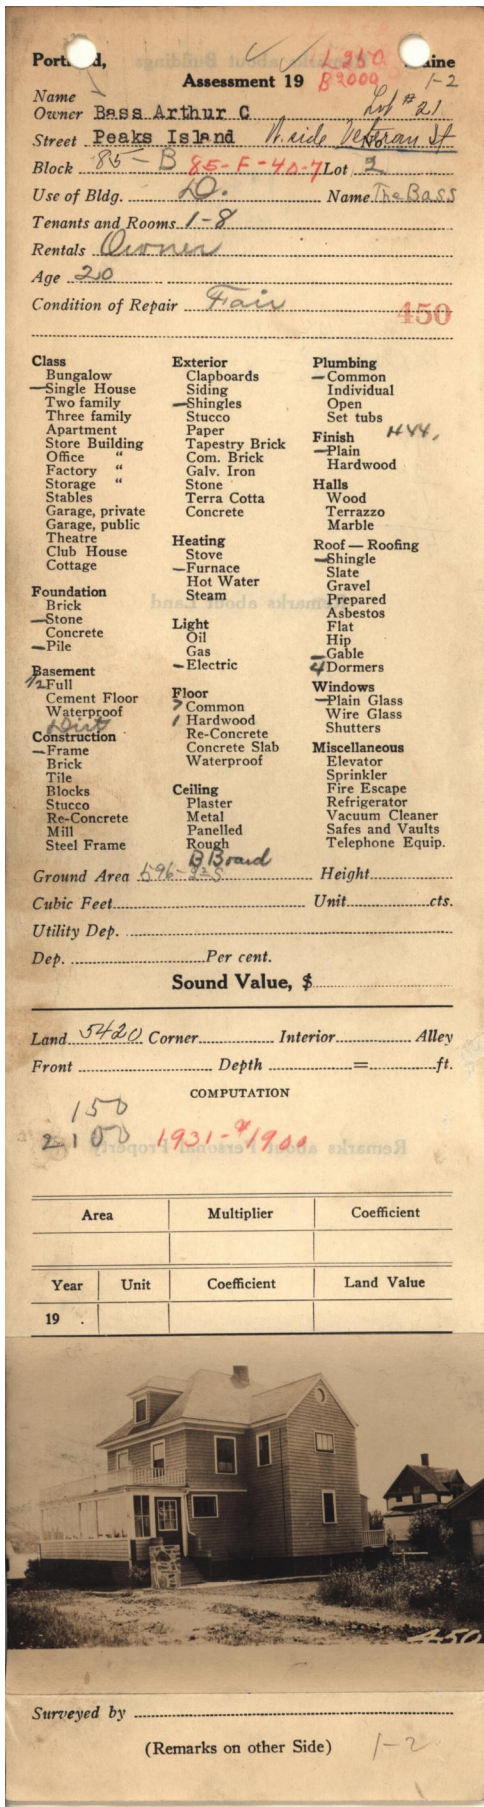 Portland, Maine
L 250
Assessment 19 B 2000 1-2
Name
Owner Bass Arthur C Lot #21
Street Peaks Island W. side Veteran St
Block 85-B 85-F-40-7 Lot 2
Use of Bldg. D. Name The Bass
Tenants and Rooms 1-8
Rentals Owner
Age 20
Condition of Repair Fair 450
Class
Bungalow
Single House
Two family
Three family
Apartment
Store Building
Office "
Factory "
Storage "
Stables
Garage, private
Garage, public
Theatre
Club House
Cottage
Foundation
Brick
Stone
Concrete
Pile
Basement
1/2 Full
Cement Floor
Waterproof
Dirt
Construction
Frame
Brick
Tile
Blocks
Stucco
Re-Concrete
Mill
Steel Frame
Exterior
Clapboards
Siding
Shingles
Stucco
Paper
Tapestry Brick
Com. Brick
Galv. Iron
Stone
Terra Cotta
Concrete
Heating
Stove
Furnace
Hot Water
Steam
Light
Oil
Gas
Electric
Floor
7 Common
1 Hardwood
Re-Concrete
Concrete Slab
Waterproof
Ceiling
Plaster
Metal
Panelled
Rough
B Board
Plumbing
Common
Individual
Open
Set tubs
Finish
Plain
Hardwood
Halls
Wood
Terrazzo
Marble
Roof — Roofing
Shingle
Slate
Gravel
Prepared
Asbestos
Flat
Hip
Gable
4 Dormers
Windows
Plain Glass
Wire Glass
Shutters
Miscellaneous
Elevator
Sprinkler
Fire Escape
Refrigerator
Vacuum Cleaner
Safes and Vaults
Telephone Equip.
Ground Area 596-225 Height
Cubic Feet Unit cts.
Utility Dep.
Dep. Per cent.
Sound Value, $
Land 5420 Corner Interior Alley
Front Depth = ft.
COMPUTATION
150
2100 1931-$1900
Remarks about Personal Property
Area Multiplier Coefficient
Year Unit Coefficient Land Value
19 .
450
Surveyed by
(Remarks on other Side) 1-2